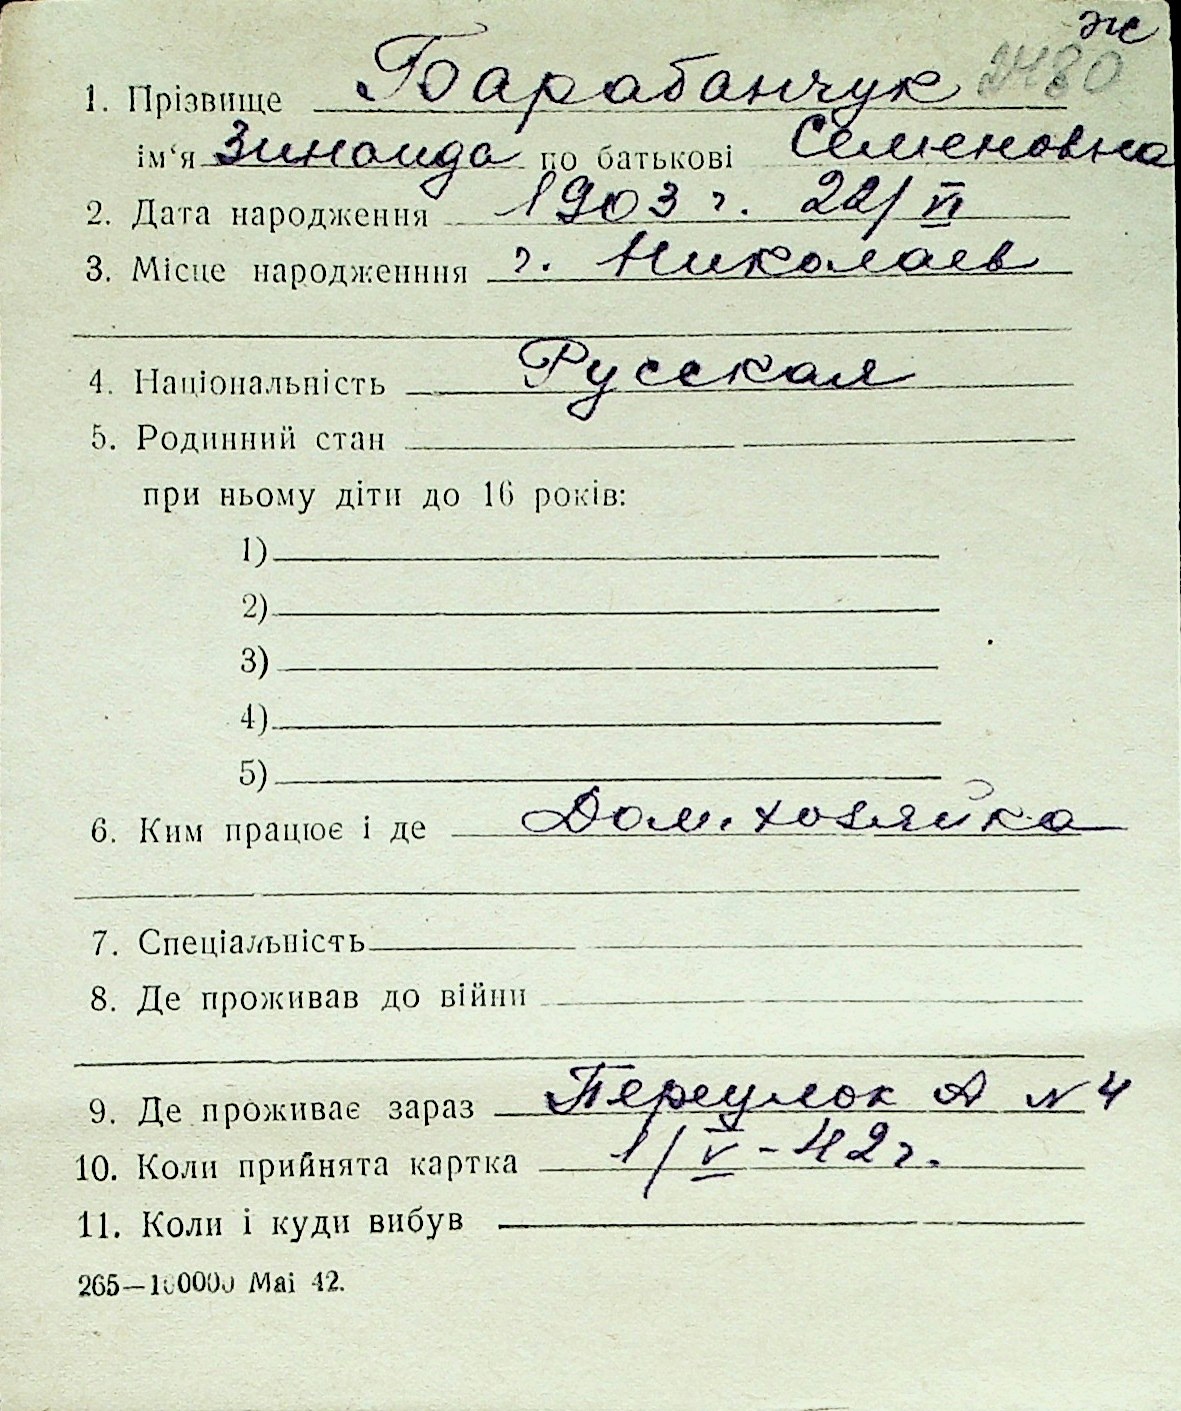 ж
2480
1. Прізвище Барабанчук
ім‘я Зинаида по батькові Семеновна
2. Дата народження 1903 г. 22/VI
3. Місце народженння г. Николаев
4. Національність Русская
5. Родинний стан
при ньому діти до 16 років:
1)
2)
3)
4)
5)
6. Ким працює і де Дом. хозяйка
7. Спеціальність
8. Де проживав до війни
9. Де проживає зараз Переулок А N 4
10. Коли прийнята картка 1/V-42 г.
11. Коли і куди вибув
265—100000 Mai 42.